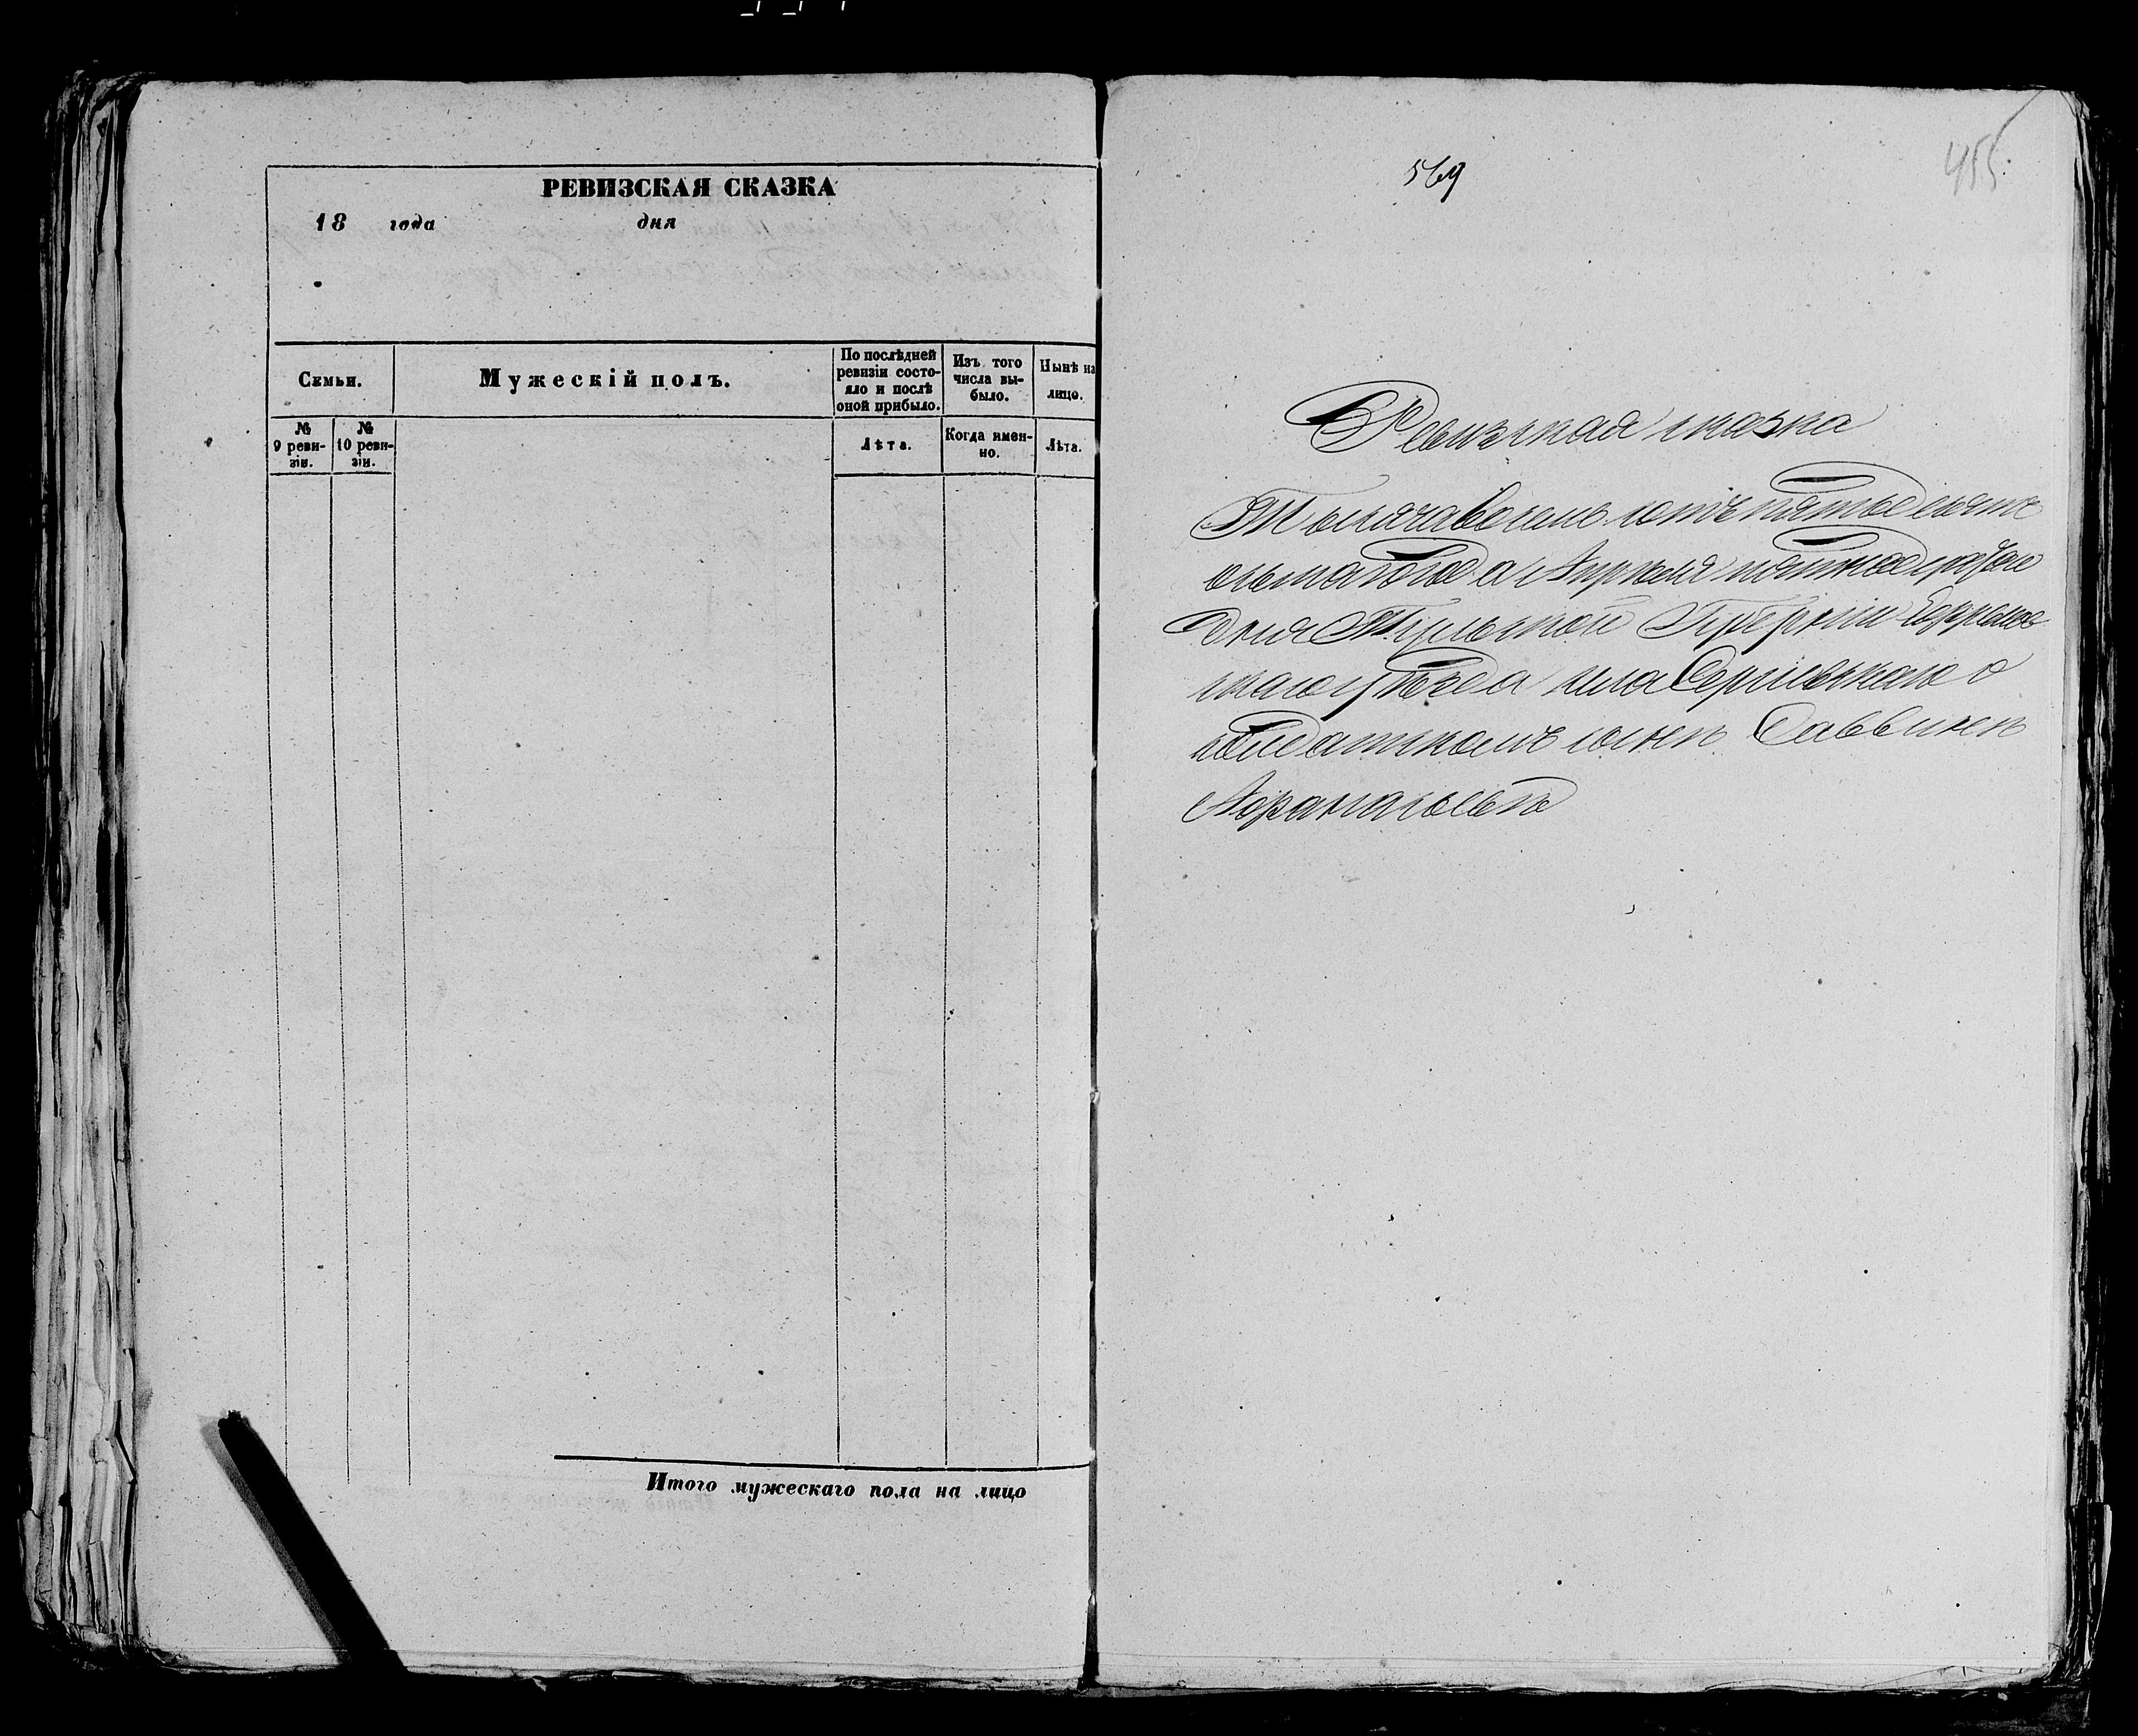 РЕВИЗСКАЯ СКАЗКА
18 года дня
Семьи.
Мужескій полъ.
По послѣдней
ревизіи состо-
яло и послѣ
оной прибыло.
Изъ того
числа вы-
было.
Нынѣ на
лицо.
№
9 реви-
зіи.
№
10 реви-
зіи.
Лѣта.
Когда имен-
но.
Лѣта.
Итого мужескаго пола на лицо
569
455
Ревизская сказка
Тысяча восемь сотъ пятьдесятъ
осьмаго года Апреля пятнадцатаго
дня Тульской Губерніи Ефремов
скаго уѣзда села Сергіевскаго о
солдатскомъ сынѣ Саввинѣ